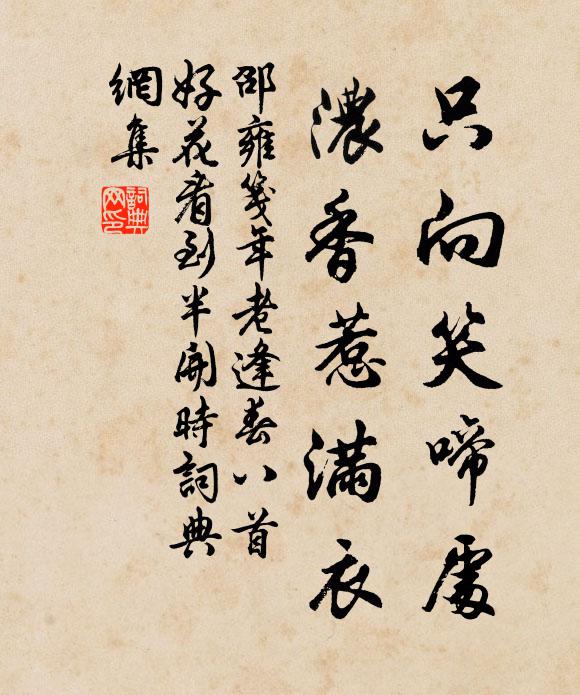 只向笑啼處
濃香惹滿衣
邵雍箋年老逢春八首
好花看到半開時詞典
網集
詞典
网印